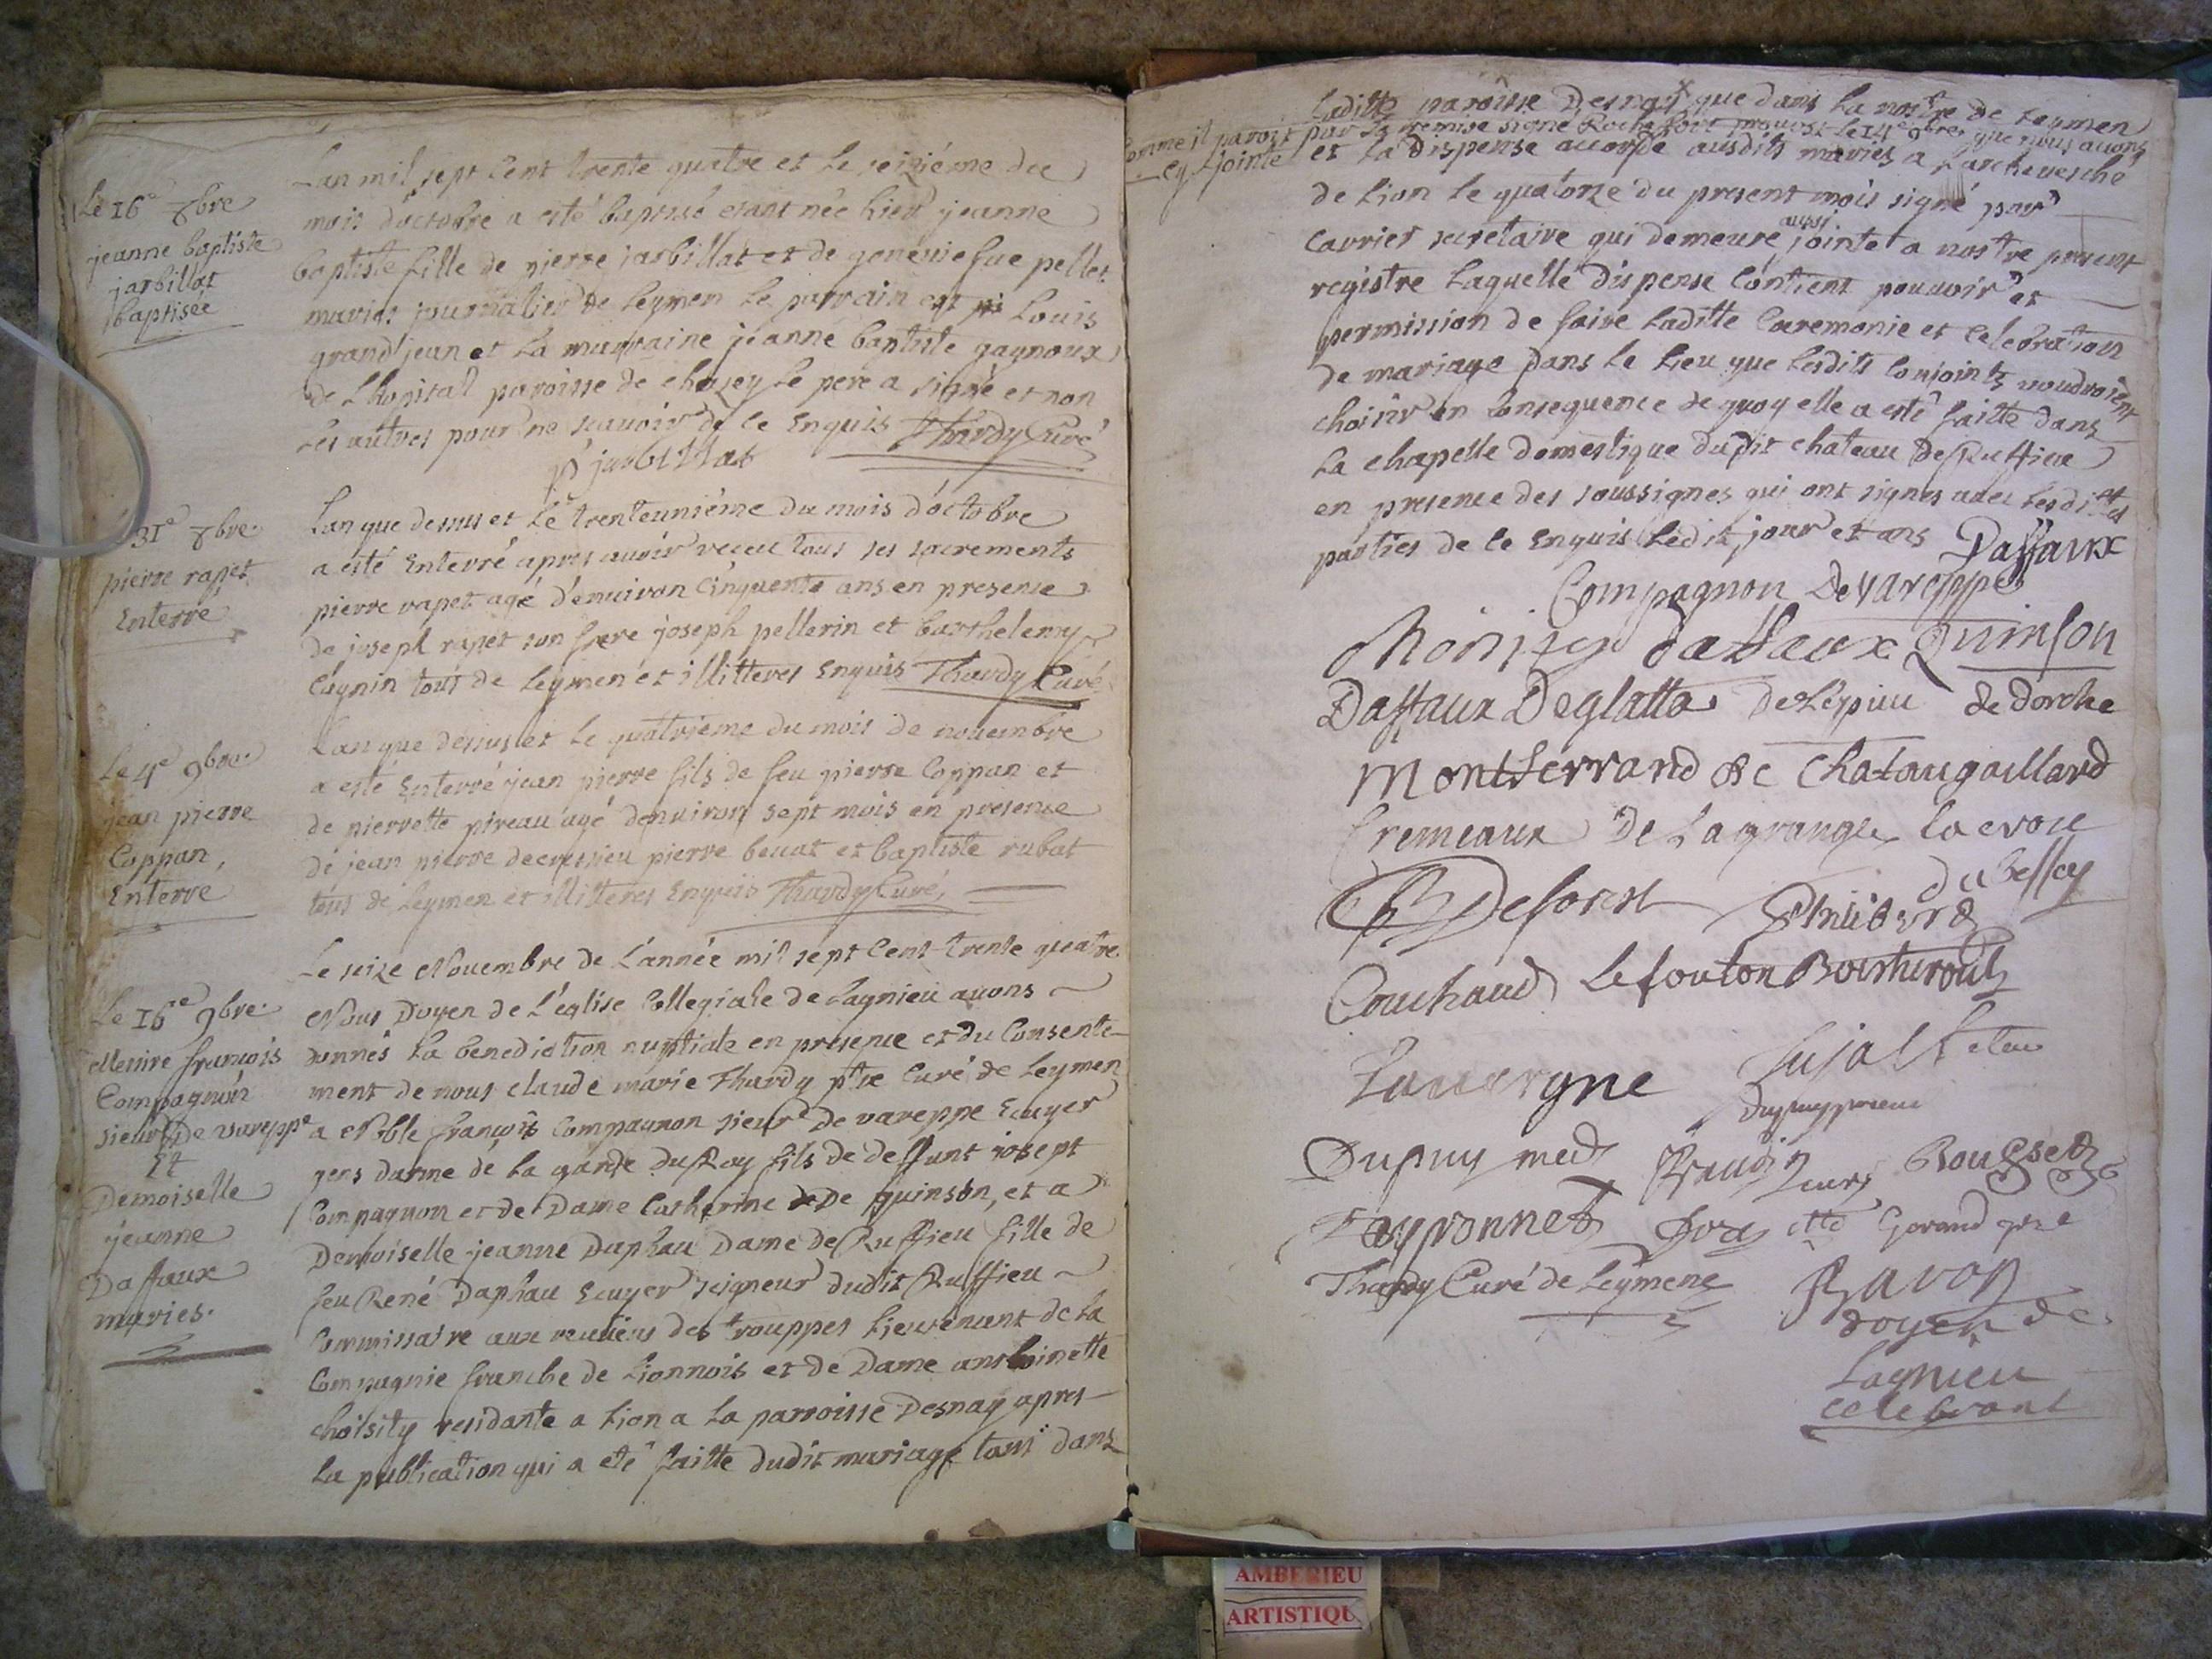 Le 16e 8bre
jeanne baptiste
jarbillat
baptisée
Lan mil sept Cent trente quatre et le seiziéme du
mois d'octobre a esté baptisé etant née hier jeanne
baptiste fille de pierre jarbillat et de geneuiefue pellet
maries journalier de Leymen le parrain est Louis
grand jean et La marraine jeanne baptiste gagnoux
de Lhopital paroisse de chazey le pere a signé et non
Les autres pour ne scauoir de ce Enquis Thardy Curé
p jarbillat
31e 8bre
pierre rapet
Enterré
Lan que dessus et le trenteuniéme du mois d'octobre
a esté Enterré apres auoir receu tous ses sacrements
pierre rapet agé d'enuiron Cinquente ans en presence
de joseph rapet son frere joseph pellerin et barthelemy
Cagnin tous de Leymen et illitteres Enquis Thardy Curé
Le 4e 9bre
jean pierre
Coppan
Enterré
Lan que dessus et le quatriéme du mois de nouembre
a esté Enterré jean pierre fils de feu pierre Coppan et
de pierrette pireau agé denuiron sept mois en presence
de jean pierre decressieu pierre beuat et baptiste rubat
tous de Leymen et illitteres Enquis Thardy Curé
Le 16e 9bre
Messire francois
Compagnon
sieur de vareppe
Et
Demoiselle
jeanne
Daffaux
maries.
Le seize Nouembre de L'année mil sept Cent trente quatre
Nous Doyen de L'église Collegiale de Lagnieu auons
donnés La benediction nuptiale en presence et du Consente-
ment de nous claude marie Thardy ptre Curé de Leymen
a Noble francois Compagnon sieur de vareppe Ecuyer
gens darme de la garde du Roy fils de deffunt josept
Compagnon et de Dame Catherine De quinson, et a
Demoiselle jeanne Daphau Dame de Ruffieu fille de
feu René Daphau Ecuyer seigneur dudit Ruffieu
Commissaire aux reuües des trouppes Lieutenant de La
Compagnie franche de Lionnois et de Dame anthoinette
choisity residante a Lion a La parroisse Desnay apres
La publication qui a eté faitte dudit mariage tant dans
Laditte paroisse Desnay que dans La nostre de Leymen
Comme il paroit par La remise signé Rochefort le 14e 9bre que nous auons
cy jointe et La dispense accordé ausdits mariés a Larcheuesché
de Lion le quatorze du present mois signé par
Cavrier secretaire qui demeure aussi jointe a nostre present
registre Laquelle dispense Contient pouuoir et
permission de faire Laditte Ceremonie et Celebration
de mariage dans le Lieu que Lesdits Conjoints voudroient
choisir en Consequence de quoy elle a esté faitte dans
La chapelle domestique dudit chateau de Ruffieu
en presence des soussignes qui ont signes auec Lesdittes
parties de ce Enquis Ledit jour et ans Daffaux
Compagnon De vareppe
daffaux Quinson
Daffaux Deglatta de Lepiuu de dorche
Montferrand de Chataugaillard
Cremeaux De Lagrange
du bellay
Deforest Philibert
Couchaud Lefouton
Lauuergne
Dupuy med
Peyronnet
Thardy Curé de Leymene Ravon
doyen de
Lagnieu
celebrant
AMBERIEU
ARTISTIQU